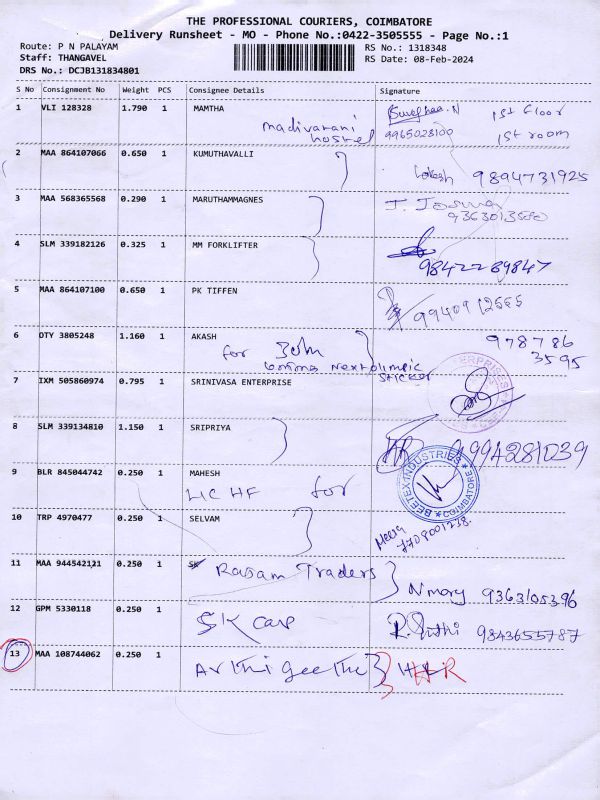 THE PROFESSIONAL COURIERS, COIMBATORE
Delivery Runsheet - MO - Phone No.:0422-3505555 - Page No.:1
Route: P N PALAYAM
RS No.: 1318348
Staff: THANGAVEL
RS Date: 08-Feb-2024
DRS No.: DCJB131834801
S No Consignment No Weight PCS Consignee Details Signature
1 VLI 128328 1.790 1 MAMTHA 1st floor
madivarani 9965028100 1st room
hostel
2 MAA 864107066 0.650 1 KUMUTHAVALLI
Lokesh 9894731925
3 MAA 568365568 0.290 1 MARUTHAMMAGNES
4 SLM 339182126 0.325 1 MM FORKLIFTER
9842289847
5 MAA 864107100 0.650 1 PK TIFFEN
6 DTY 3805248 1.160 1 AKASH 978786
for 3595
sticker
7 IXM 505860974 0.795 1 SRINIVASA ENTERPRISE
8 SLM 339134810 1.150 1 SRIPRIYA
9994281039
BEETEX INDUSTRIES
COIMBATORE
9 BLR 845044742 0.250 1 MAHESH
LIC HF for
10 TRP 4970477 0.250 1 SELVAM
Meera
7708001238.
11 MAA 944542121 0.250 1 SK Rasam Traders
9363105396
12 GPM 5330118 0.250 1 SK cars
9843655787
13 MAA 108744062 0.250 1 Arthi geethe HR